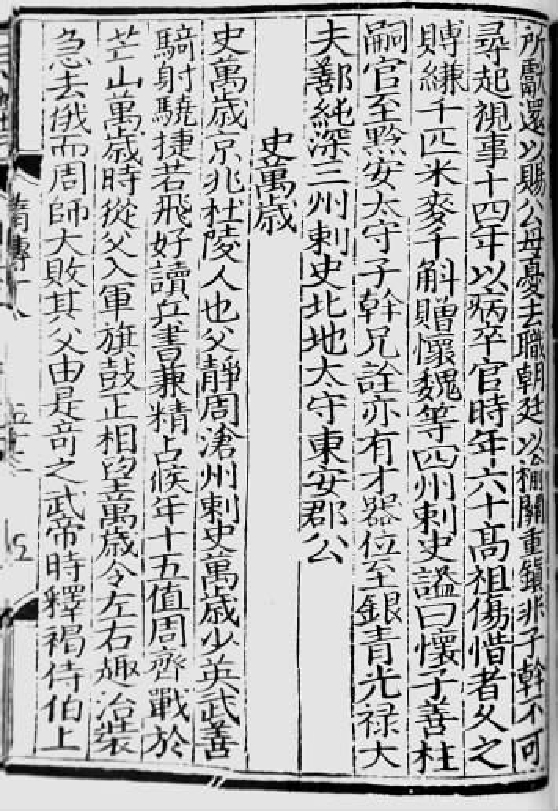 所獻還以賜公母憂去職朝廷以公禰關重鎮非子幹不可
尋起視事十四年以病卒官時年六十高祖傷惜者久之
賻縑千匹米麥千斛贈懷魏等四州刺史謚曰懷子善柱
嗣官至黔安太守子幹兄詮亦有才器位至銀青光禄大
夫鄯純深三州刺史北地太守東安郡公
史萬歳
史萬歳京兆杜陵人也父靜周滄州刺史萬歳少英武善
騎射驍捷若飛好讀兵書兼精占候年十五值周齊戰於
芒山萬歳時從父入軍旗鼓正相望萬歳令左右趣治裝
急去俄而周師大敗其父由是竒之武帝時釋褐侍伯上